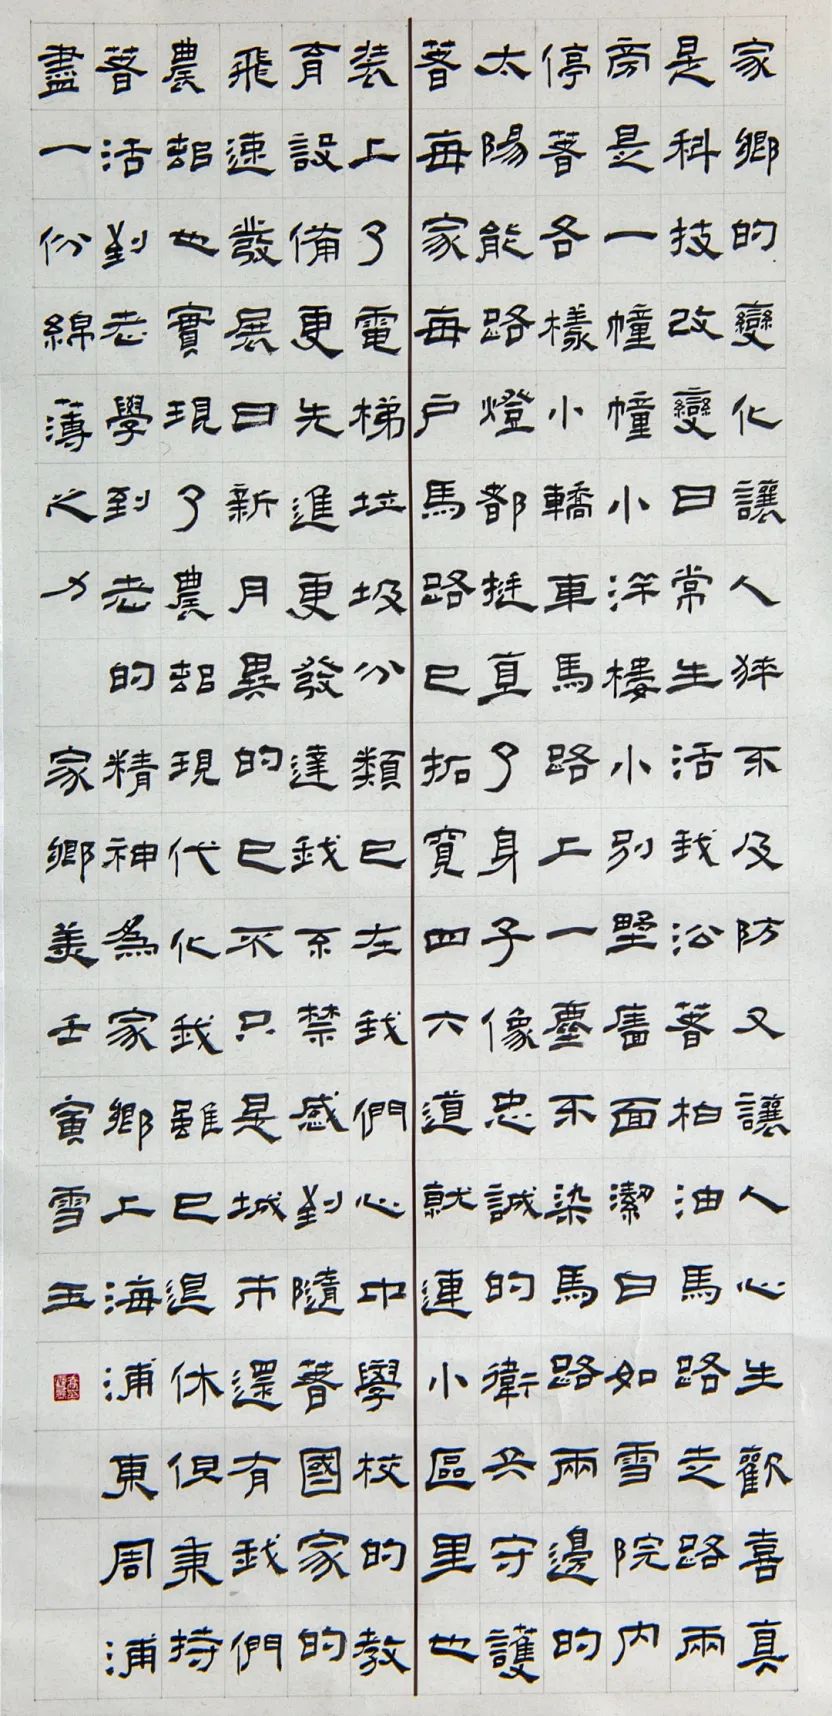 家鄉的變化讓人猝不及防又讓人心生歡喜真
是科技改變日常生活我沿著柏油馬路走路兩
旁是一幢幢小洋樓小别墅牆面潔白如雪院内
停著各樣小轎車馬路上一塵不染馬路兩邊的
太陽能路燈都挺直了身子像忠誠的衛兵守護
著每家每户馬路已拓寬四六道就連小區里也
裝上了電梯垃圾分類已在我們心中學校的教
育設備更先進更發達我不禁感到隨著國家的
飛速發展日新月異的已不只是城市還有我們
農邨也實現了農邨現代化我雖已退休但秉持
著活到老學到老的精神為家鄉上海浦東周浦
盡一份綿薄之力 家鄉美壬寅雪玉